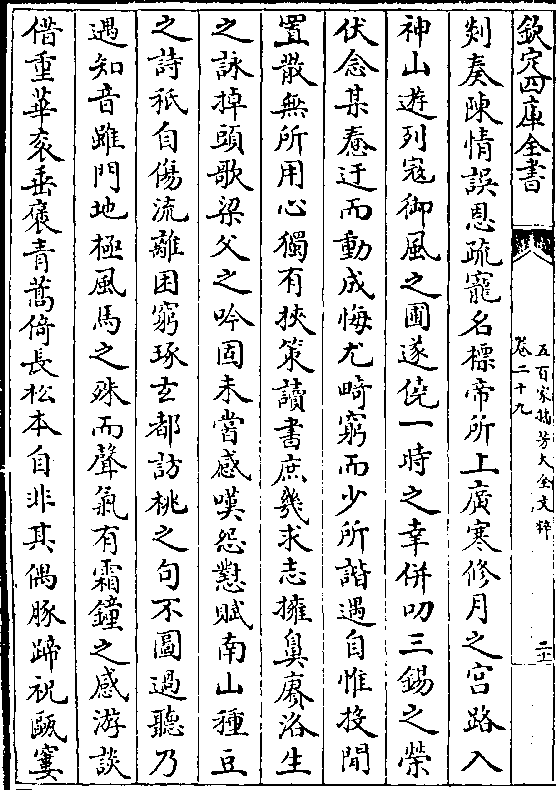 欽定四庫全書
五百家播芳大全文粹
卷二十九
二十
剡奏陳情誤恩疏寵名標帝所上廣寒修月之宮路入
神山遊列寇御風之圃遂僥一時之幸併叨三錫之榮
伏念某憃迂而動成悔尤畸窮而少所諧遇自惟投閒
置散無所用心獨有挾策讀書庶幾求志擁鼻賡洛生
之詠掉頭歌梁父之吟固未嘗感嘆怨懟賦南山種豆
之詩秪自傷流離困窮琢玄都訪桃之句不圖過聽乃
遇知音雖門地極風馬之殊而聲氣有霜鐘之感游談
借重華衮垂褒青蒿倚長松本自非其偶豚蹄祝甌窶